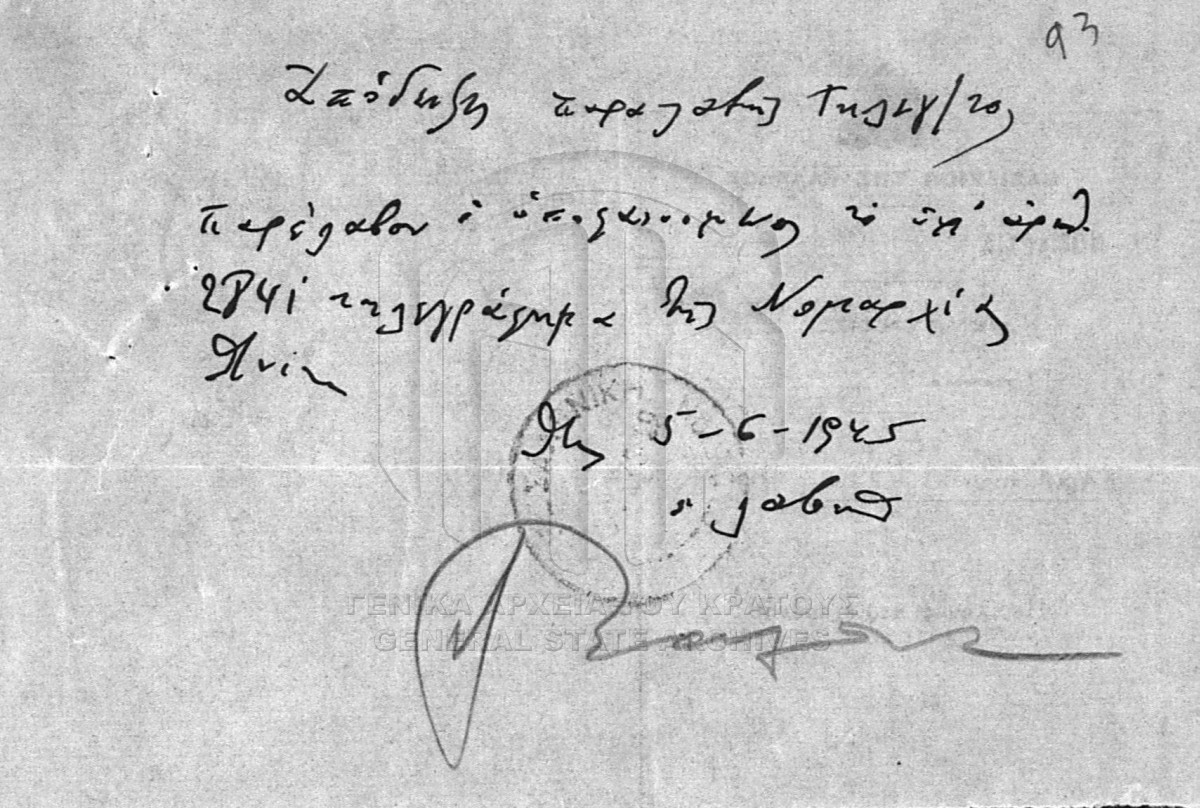 93
Ἀπόδειξις παραλαβῆς τηλεγ/τος
Παρέλαβον ὁ ὑπογεγραμμένος τὸ ὑπ' ἀριθ.
2841 τηλεγράφημα τῆς Νομαρχίας
5-6-1945
ὁ λαβὼν
ΓΕΝΙΚΑ ΑΡΧΕΙΑ ΤΟΥ ΚΡΑΤΟΥΣ
GENERAL STATE ARCHIVES